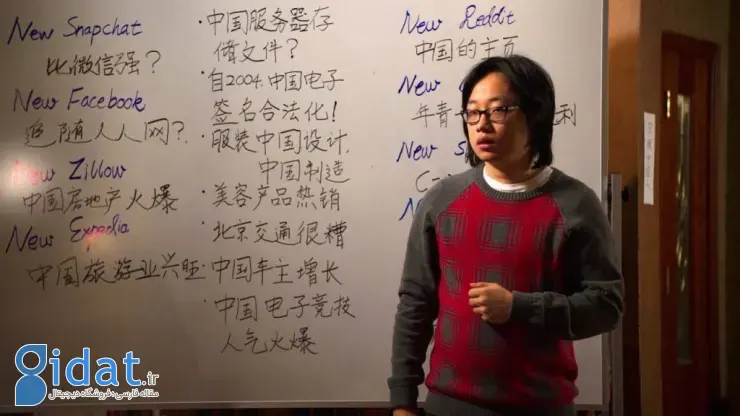 New Snapchat
比微信强？
New Facebook
追随人人网？
New Zillow
中国房地产火爆
New Expedia
中国旅游业兴旺
·中国服务器存
储文件？
·自2004,中国电子
签名合法化！
·服装中国设计,
中国制造
·美容产品热销
·北京交通很糟
·中国车主增长
·中国电子竞技
人气火爆
New Reddit
中国的主页
New
年青
利
New
C
Gidat.ir
مقاله فارسی؛ فروشگاه دیجیتال